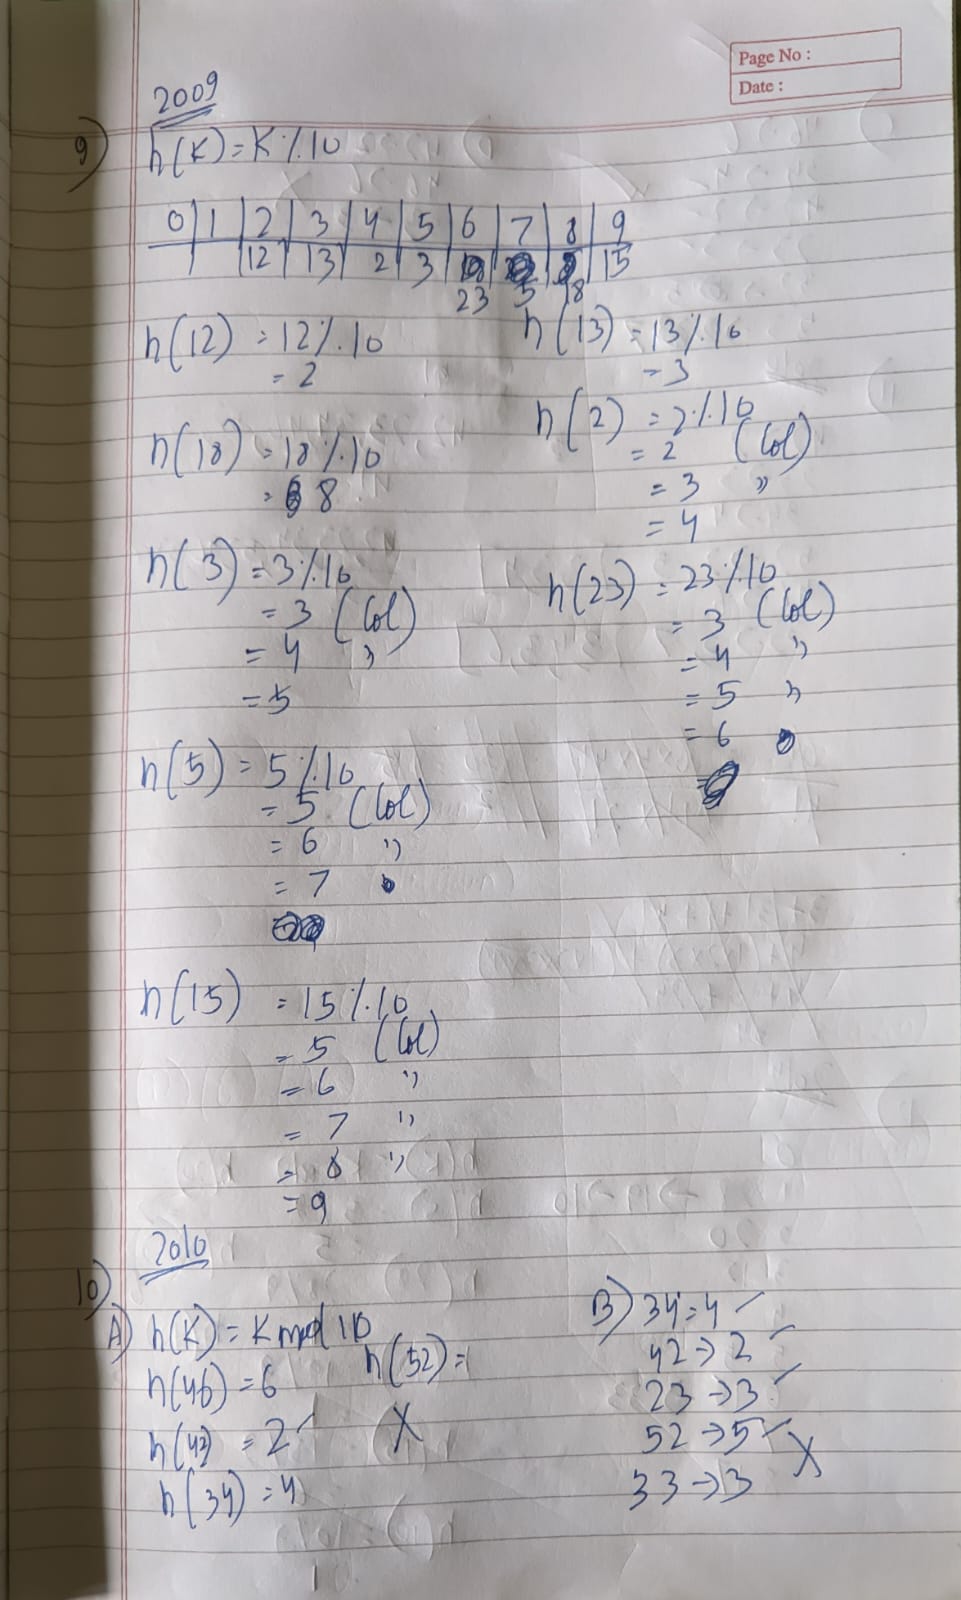 Page No :
Date :
2009
9)
h(K) = K % 10
0 | 1 | 2 | 3 | 4 | 5 | 6 | 7 | 8 | 9
12 | 13 | 2 | 3 | 15
23 5 18
h(12) = 12 % 10
= 2
h(13) = 13 % 10
= 3
h(18) = 18 % 10
= 8
h(2) = 2 % 10
= 2 (Col)
= 3 "
= 4
h(3) = 3 % 10
= 3 (Col)
= 4 "
= 5
h(23) = 23 % 10
= 3 (Col)
= 4 "
= 5 "
= 6
h(5) = 5 % 10
= 5 (Col)
= 6 "
= 7
h(15) = 15 % 10
= 5 (Col)
= 6 "
= 7 "
= 8 "
= 9
2010
10)
A) h(K) = K mod 10
h(46) = 6
h(42) = 2 ✓
h(34) = 4
h(52) =
X
B) 34 = 4 ✓
42 → 2 ✓
23 → 3 ✓
52 → 5 ✓
33 → 3
X